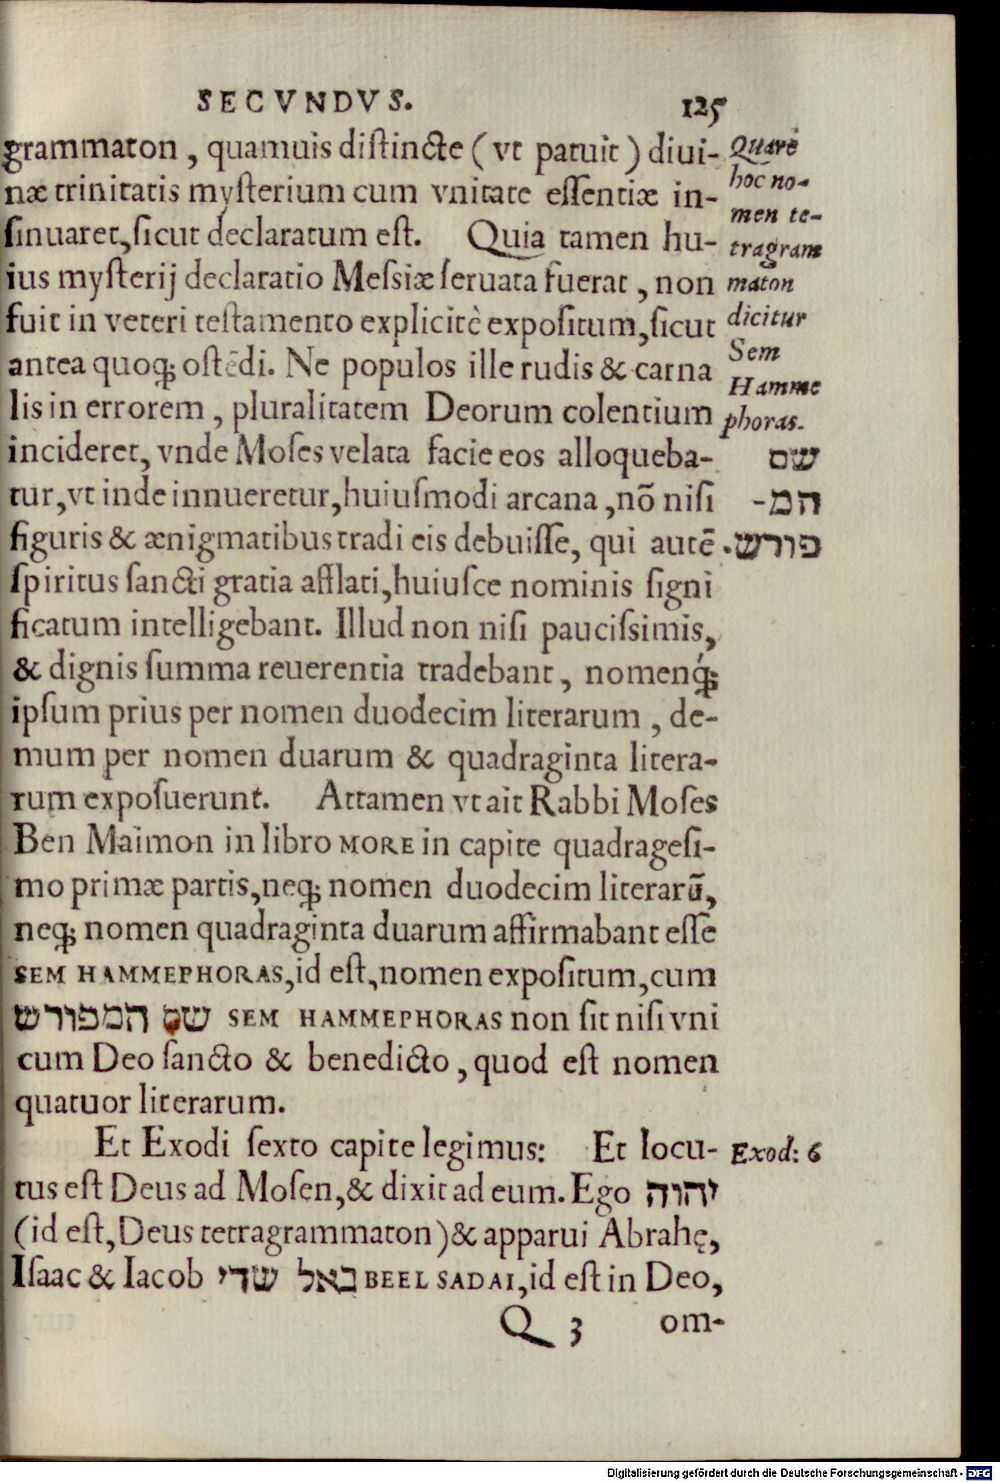 SECVNDVS. 125
grammaton, quamuis distincte (vt patuit) diui-
næ trinitatis mysterium cum vnitate essentiæ in-
sinuaret, sicut declaratum est. Quia tamen hu-
ius mysterij declaratio Messiæ seruata fuerat, non
fuit in veteri testamento explicitè expositum, sicut
antea quoq; ostēdi. Ne populos ille rudis & carna
lis in errorem, pluralitatem Deorum colentium
incideret, vnde Moses velata facie eos alloqueba-
tur, vt inde innueretur, huiusmodi arcana, nō nisi
figuris & ænigmatibus tradi eis debuisse, qui autē
spiritus sancti gratia afflati, huiusce nominis signi
ficatum intelligebant. Illud non nisi paucissimis,
& dignis summa reuerentia tradebant, nomenq́;
ipsum prius per nomen duodecim literarum, de-
mum per nomen duarum & quadraginta litera-
rum exposuerunt. Attamen vt ait Rabbi Moses
Ben Maimon in libro MORE in capite quadragesi-
mo primæ partis, neq; nomen duodecim literarū,
neq; nomen quadraginta duarum affirmabant esse
SEM HAMMEPHORAS, id est, nomen expositum, cum
שם המפורש SEM HAMMEPHORAS non sit nisi vni
cum Deo sancto & benedicto, quod est nomen
quatuor literarum.
Et Exodi sexto capite legimus: Et locu-
tus est Deus ad Mosen, & dixit ad eum. Ego יהוה
(id est, Deus tetragrammaton) & apparui Abrahę,
Isaac & Iacob באל שדי BEEL SADAI, id est in Deo,
Q 3 om-
Quare
hoc no-
men te-
tragram
maton
dicitur
Sem
Hamme
phoras.
שם
המ-
פורש.
Exod: 6
Digitalisierung gefördert durch die Deutsche Forschungsgemeinschaft - DFG